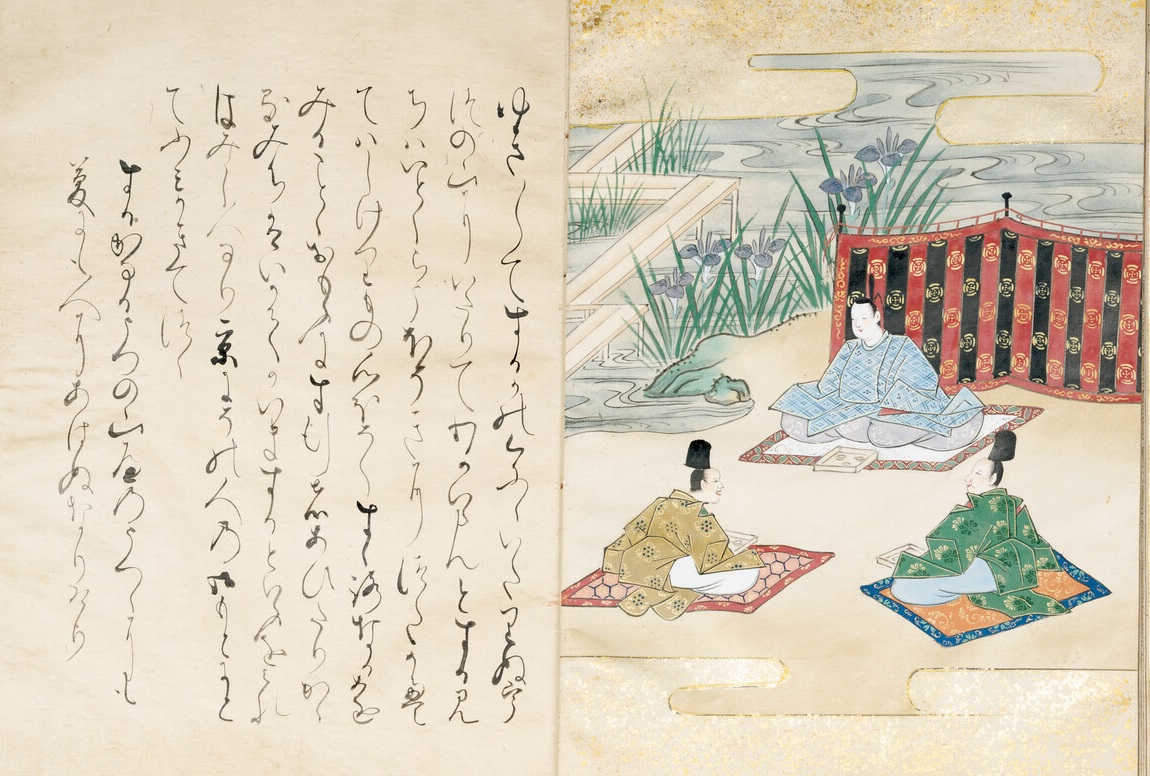 ゆき〱てするかのくにゝいたりぬう
つの山にいたりてわかいらんとするみ
ちはいとくらうほそきにつたかえ
てはしけりもの心ほそくすゝろなるめを
みることとおもふにす行者あひたりかゝ
るみちはいかてかいまするといふをみれ
はみし人なり京にその人の御もとにと
てふみかきてつく
するかなるうつの山辺のうつゝにも
夢にも人にあはぬなりけり